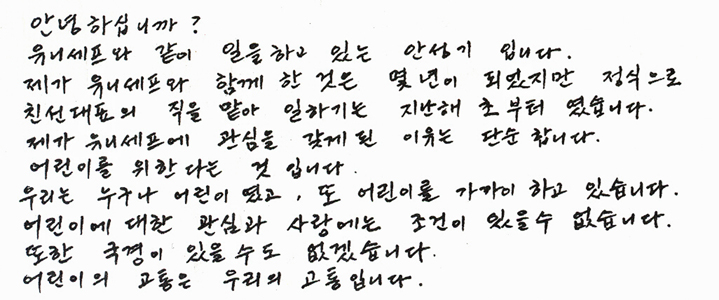 안녕하십니까?
유니세프와 같이 일을하고 있는 안성기 입니다.
제가 유니세프와 함께 한 것은 몇년이 되었지만 정식으로
친선대표의 직을 맡아 일하기는 지난해 초부터 였습니다.
제가 유니세프에 관심을 갖게된 이유는 단순합니다.
어린이를 위한다는 것 입니다.
우리는 누구나 어린이였고, 또 어린이를 가까이 하고 있습니다.
어린이에 대한 관심과 사랑에는 조건이 있을수 없습니다.
또한 국경이 있을 수도 없겠습니다.
어린이의 고통은 우리의 고통입니다.